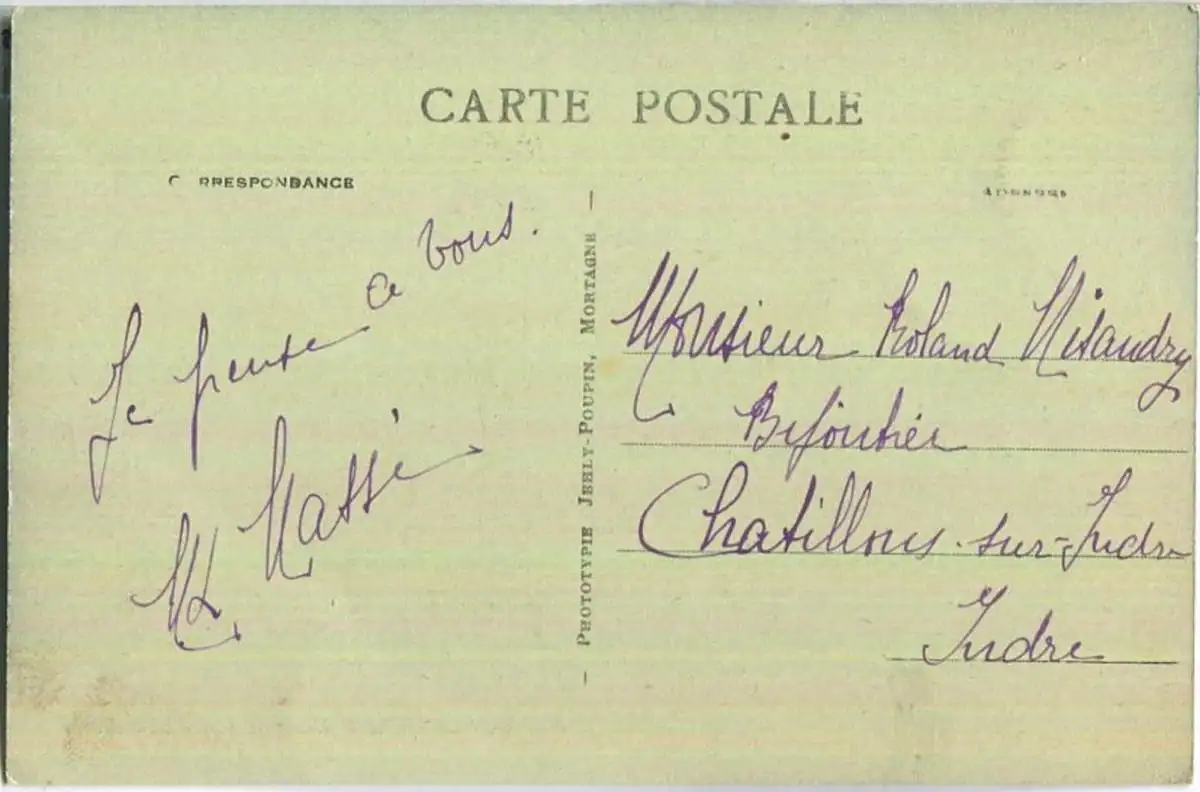 CARTE POSTALE
C RRESPONDANCE
ADRESSE
Je pense a vous.
M Massé
PHOTOTYPIE JEHLY-POUPIN, MORTAGNE
Monsieur Roland
Bijoutier
Chatillons-sur-Indre
Indre